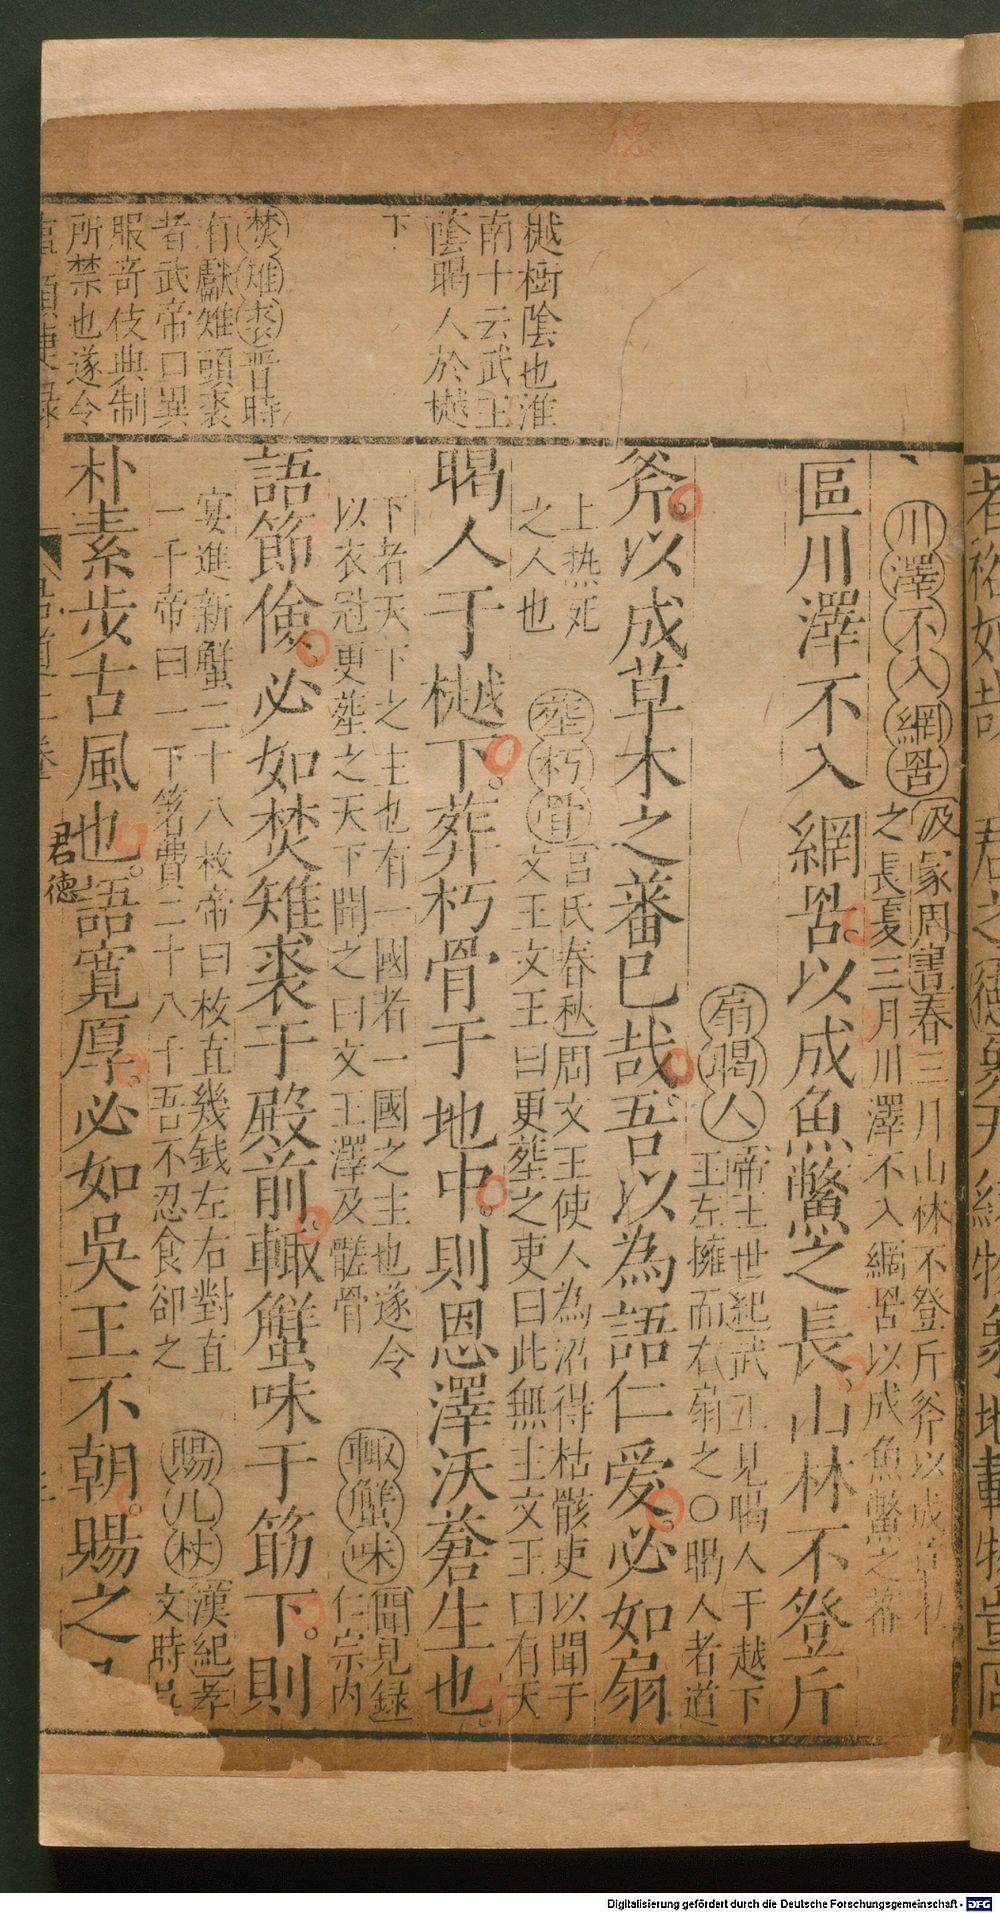 德
樾樹陰也淮
南十云武王
蔭暍人於樾
下
焚雉裘晋時
有獻雉頭裘
者武帝曰異
服奇伎典制
所禁也遂令
川澤不入網罟汲冢周書春三月山林不登斤斧以成草木
之長夏三月川澤不入網罟以成魚鱉之蕃
區川澤不入網罟以成魚鱉之長山林不登斤
扇暍人帝王世紀武王見暍人于越下
王左擁而右扇之〇暍人者道
斧以成草木之蕃已哉吾以為語仁愛必如扇
上热死
之人也
塟朽骨吕氏春秋周文王使人為沼得枯骸吏以聞于
文王文王曰更塟之吏曰此無主文王曰有天
暍人于樾下葬朽骨于地中則恩澤沃蒼生也
下者天下之主也有一國者一國之主也遂令
以衣冠更塟之天下聞之曰文王澤及髊骨
輙蟹味聞見録
仁宗内
語節儉必如焚雉裘于殿前輙蟹味于筋下則
宴進新蟹二十八枚帝曰枚直幾錢左右對直
一千帝曰一下箸費二十八千吾不忍食卻之
賜几杖漢紀孝
文時吳
朴素步古風也語寬厚必如吳王不朝賜之
君德
者裕如哉 君之德象天
Digitalisierung gefördert durch die Deutsche Forschungsgemeinschaft - DFG